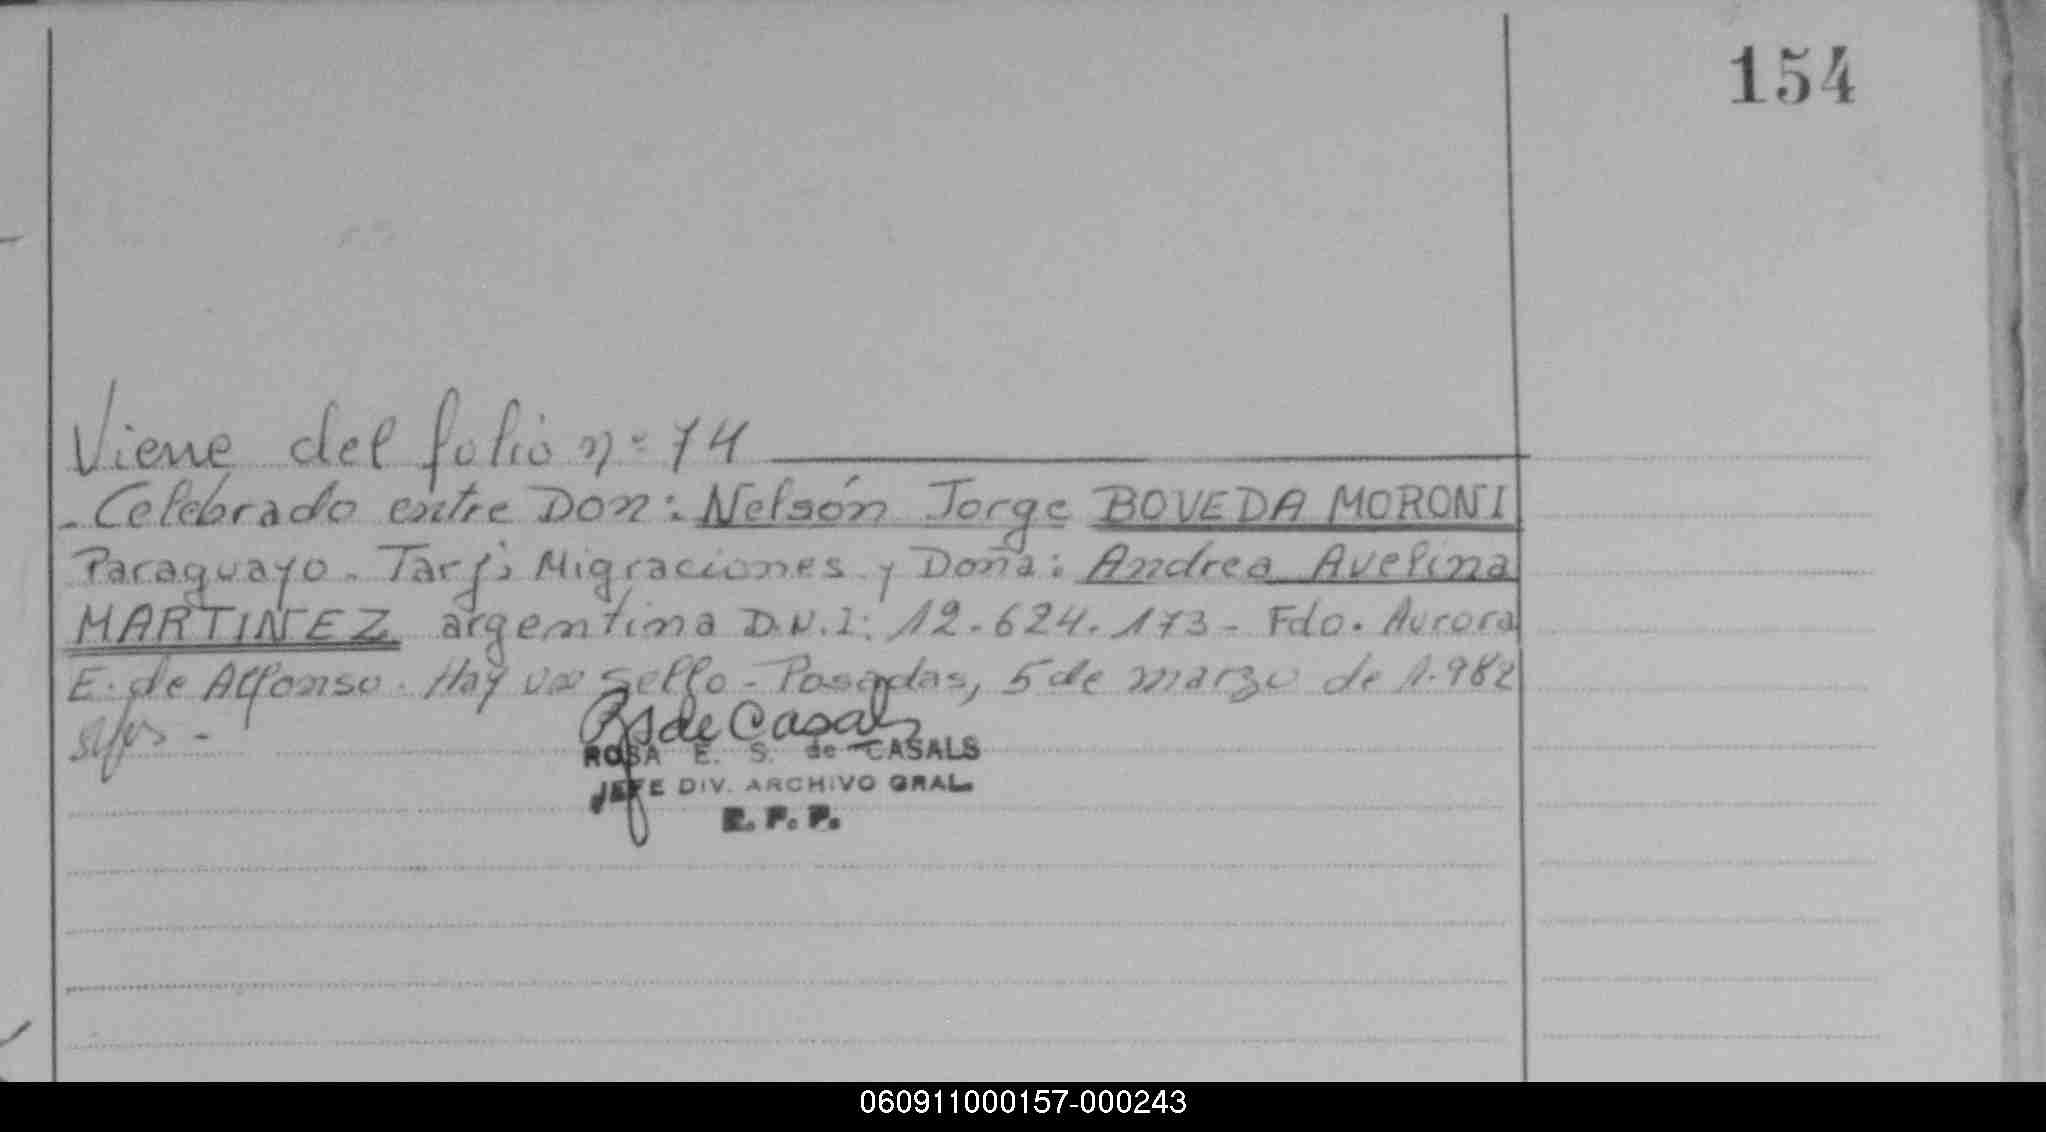 154
Viene del folio nº 74
- Celebrado entre Don: Nelsón Jorge BOVEDA MORONI
Paraguayo. Tarj: Migraciones y Doña: Andrea Avelina
MARTINEZ argentina D.N.I: 12.624.173 - Fdo. Aurora
E. de Alfonso. Hay un sello - Posadas, 5 de marzo de 1.982
de Casals
ROSA E. S. de CASALS
JEFE DIV. ARCHIVO GRAL.
R. P. P.
060911000157-000243